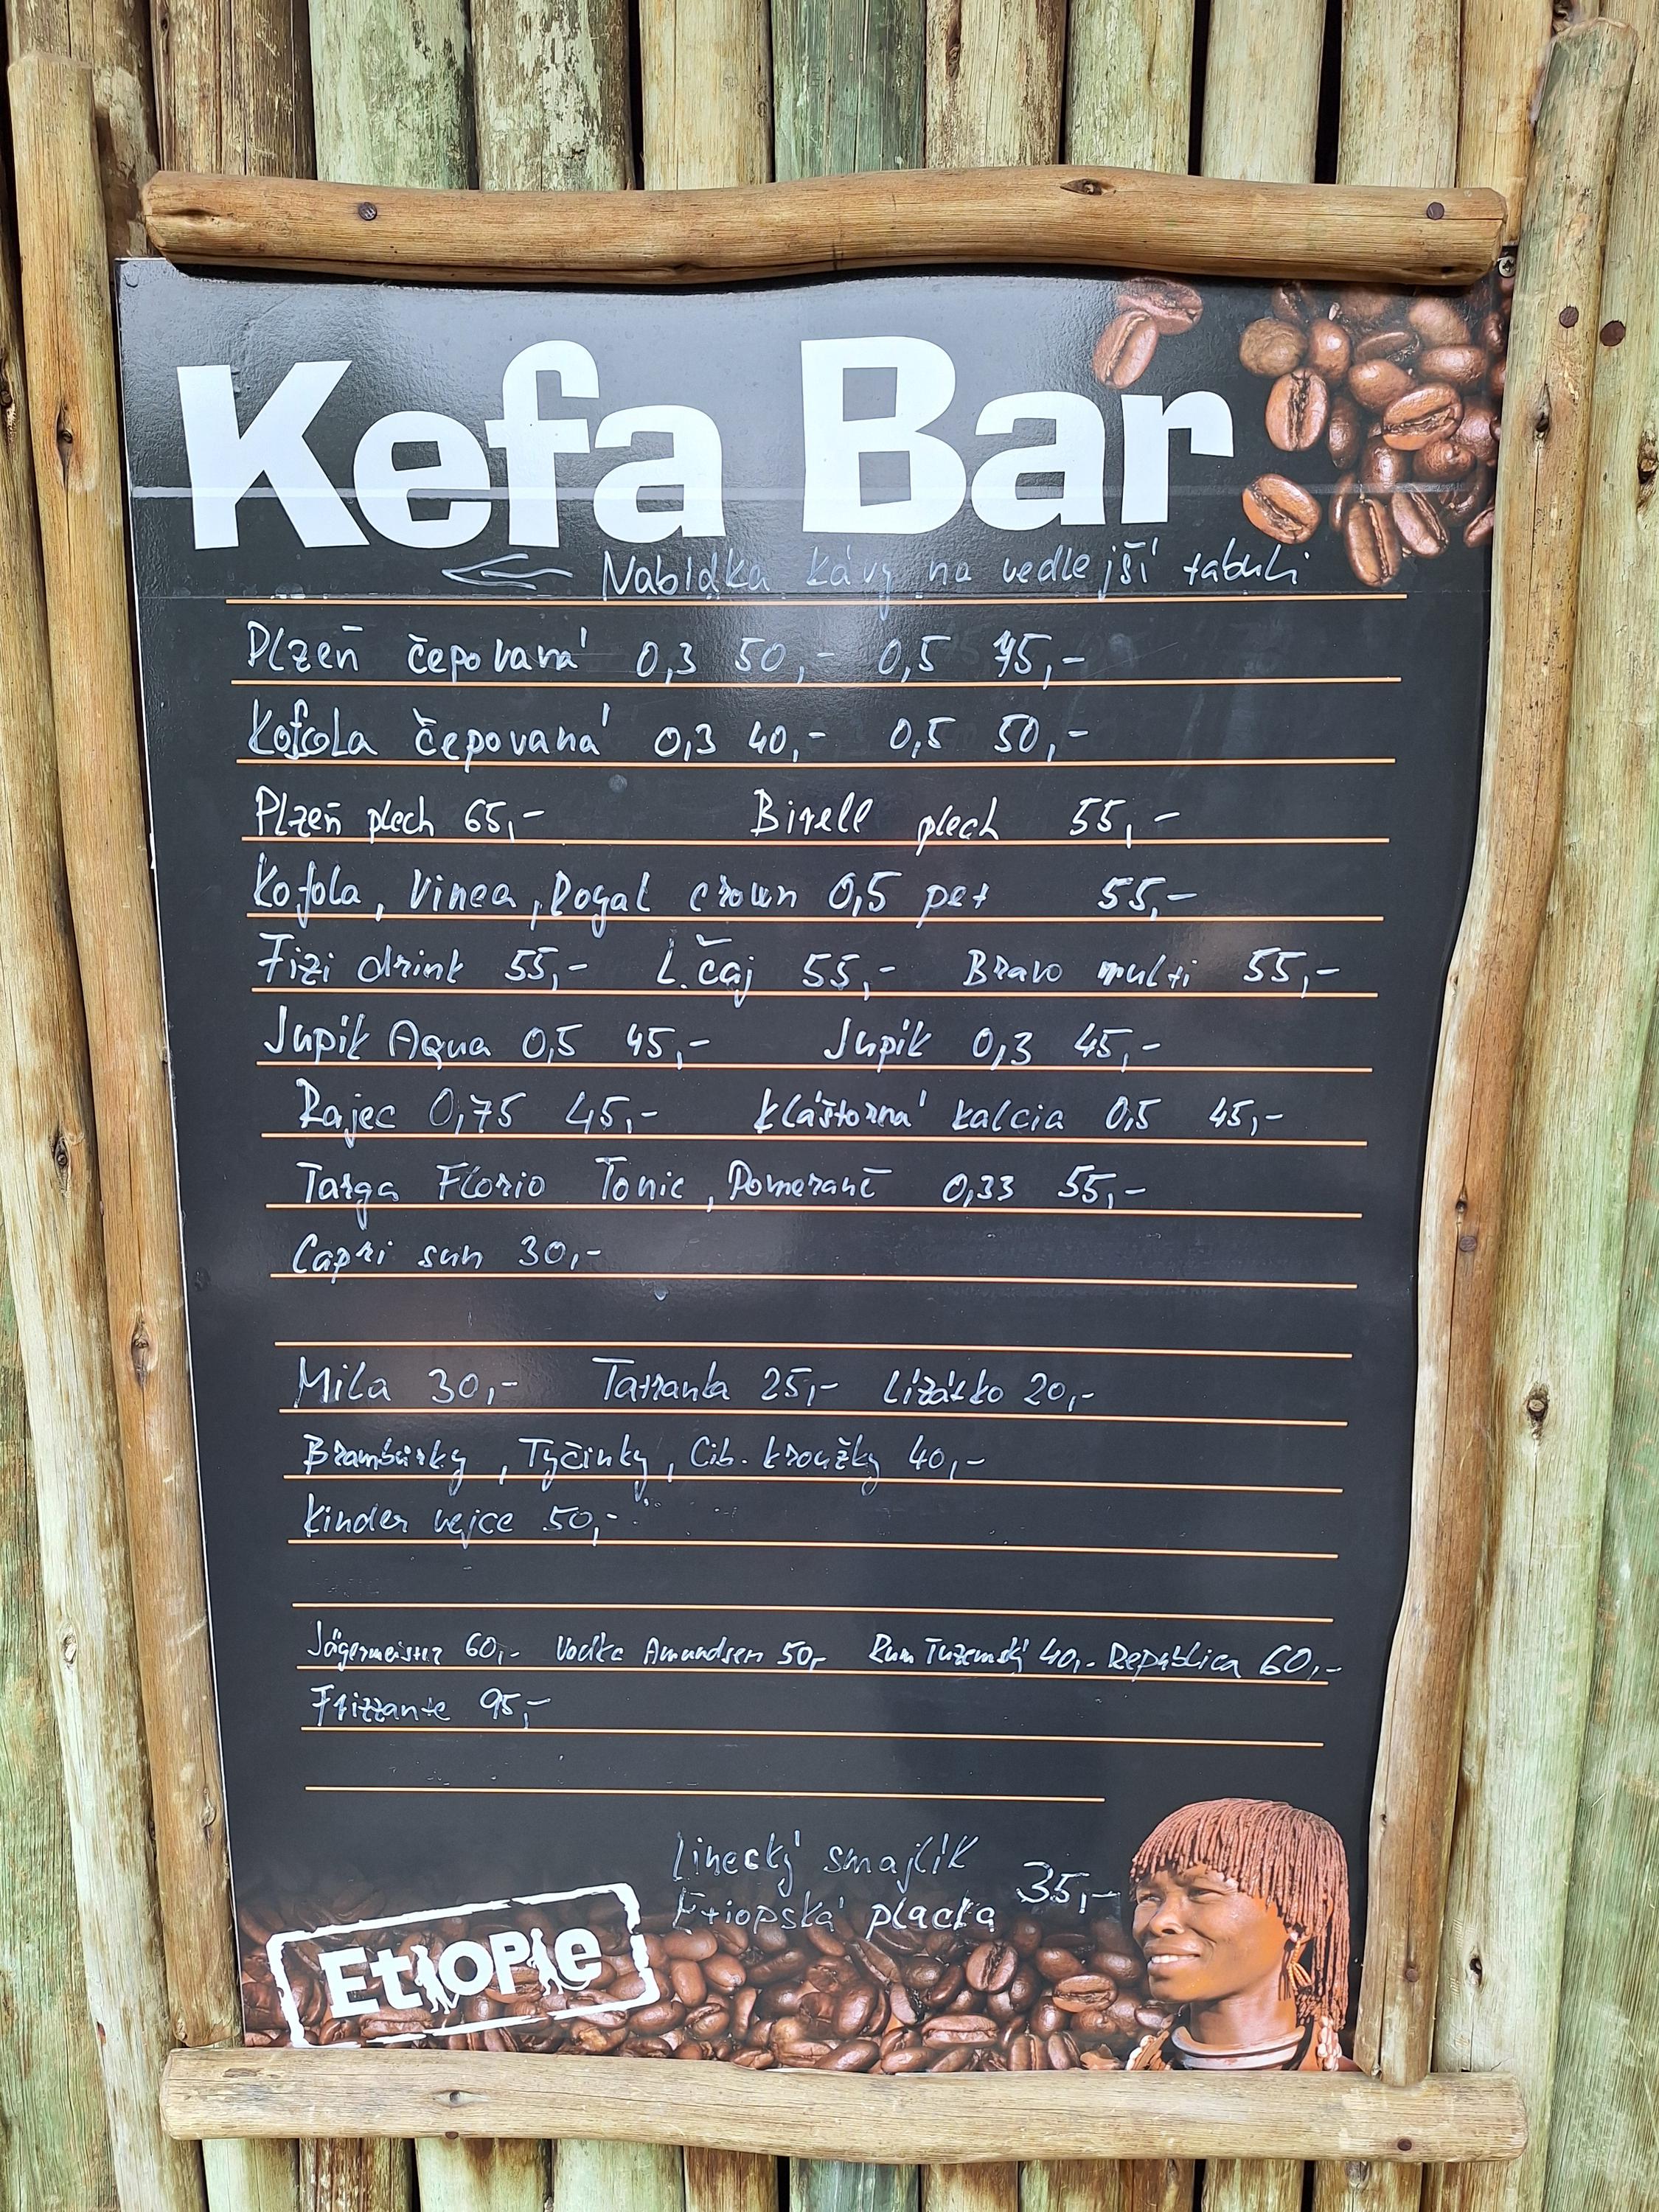 Kefa Bar
Nabídka kávy na vedlejší tabuli
Plzeň čepovaná 0,3 50,- 0,5 75,-
Kofola čepovaná 0,3 40,- 0,5 50,-
Plzeň plech 65,- Birell plech 55,-
Kofola, Vinea, Royal crown 0,5 pet 55,-
Fizi drink 55,- L. čaj 55,- Bravo multi 55,-
Jupík Aqua 0,5 45,- Jupík 0,3 45,-
Rajec 0,75 45,- Kláštorná kalcia 0,5 45,-
Targa Florio Tonic, Pomeranč 0,33 55,-
Capri sun 30,-
Mila 30,- Tatranka 25,- Lízátko 20,-
Brambůrky, Tyčinky, Cib. kroužky 40,-
Kinder vejce 50,-
Jägermeister 60,- Vodka Amundsen 50,- Rum Tuzemský 40,- Republica 60,-
Frizzante 95,-
Linecký smajlík
Etiopská placka 35,-
Etiopie